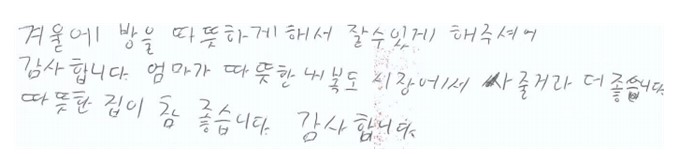 겨울에 방을 따뜻하게 해서 잘수있게 해주셔서
감사합니다. 엄마가 따뜻한 내복도 시장에서 사줄거라 더 좋습니다.
따뜻한 집이 참 좋습니다. 감사합니다.